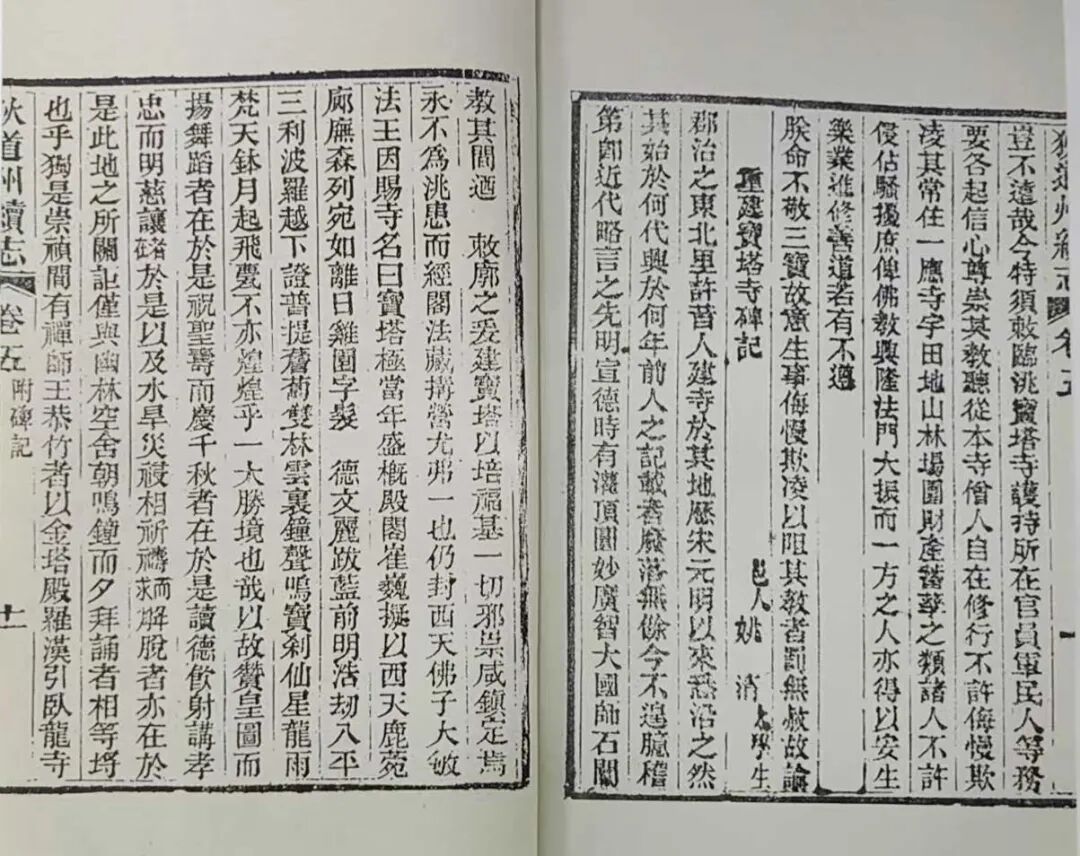 狄道州續志 卷五
豈不遠哉今特須敕臨洮寶塔寺護持所在官員軍民人等務
要各起信心尊崇其教聽從本寺僧人自在修行不許侮慢欺
凌其常住一應寺宇田地山林場圃財產孳之類諸人不許
侵佔騷擾庶俾佛教興隆法門大振而一方之人亦得以安生
樂業進修善道若有不遵
朕命不敬三寶故意生事侮慢欺凌以阻其教者罰無赦故諭
重建寶塔寺碑記 邑人姚 生
郡治之東北里許昔人建寺於其地歷宋元明以來悉沿之然
其始於何代興於何年前人之記載者廢落無餘今不遑臆稽
第卽近代略言之先明宣德時有灌頂圓妙廣智大國師石關
教其間迺 敕廓之爰建寶塔以培福基一切邪祟咸鎮定焉
永不為洮患而經閣法藏搆營尤弗一也仍封西天佛子大敏
法王因賜寺名曰寶塔極當年盛概殿閣崔巍擬以西天鹿苑
廊廡森列宛如離日雞園字髮 德文麗跋藍前明浩劫八平
三利波羅越下證普提薝蔔雙林雲裏鐘聲鳴寶刹仙星龍雨
梵天鉢月起飛甍不亦煌煌乎一大勝境也哉以故贊皇圖而
揚舞蹈者在於是祝聖壽而慶千秋者在於是讀德飲射講孝
忠而明慈讓者於是以及水旱災祲相祈禱而求解脫者亦在於
是此地之所關詎僅與幽林空舍朝鳴鐘而夕拜誦者相等埒
也乎獨是崇禎間有禪師王恭竹者以金塔殿羅漢引臥龍寺
狄道州續志 卷五 附碑記 十一